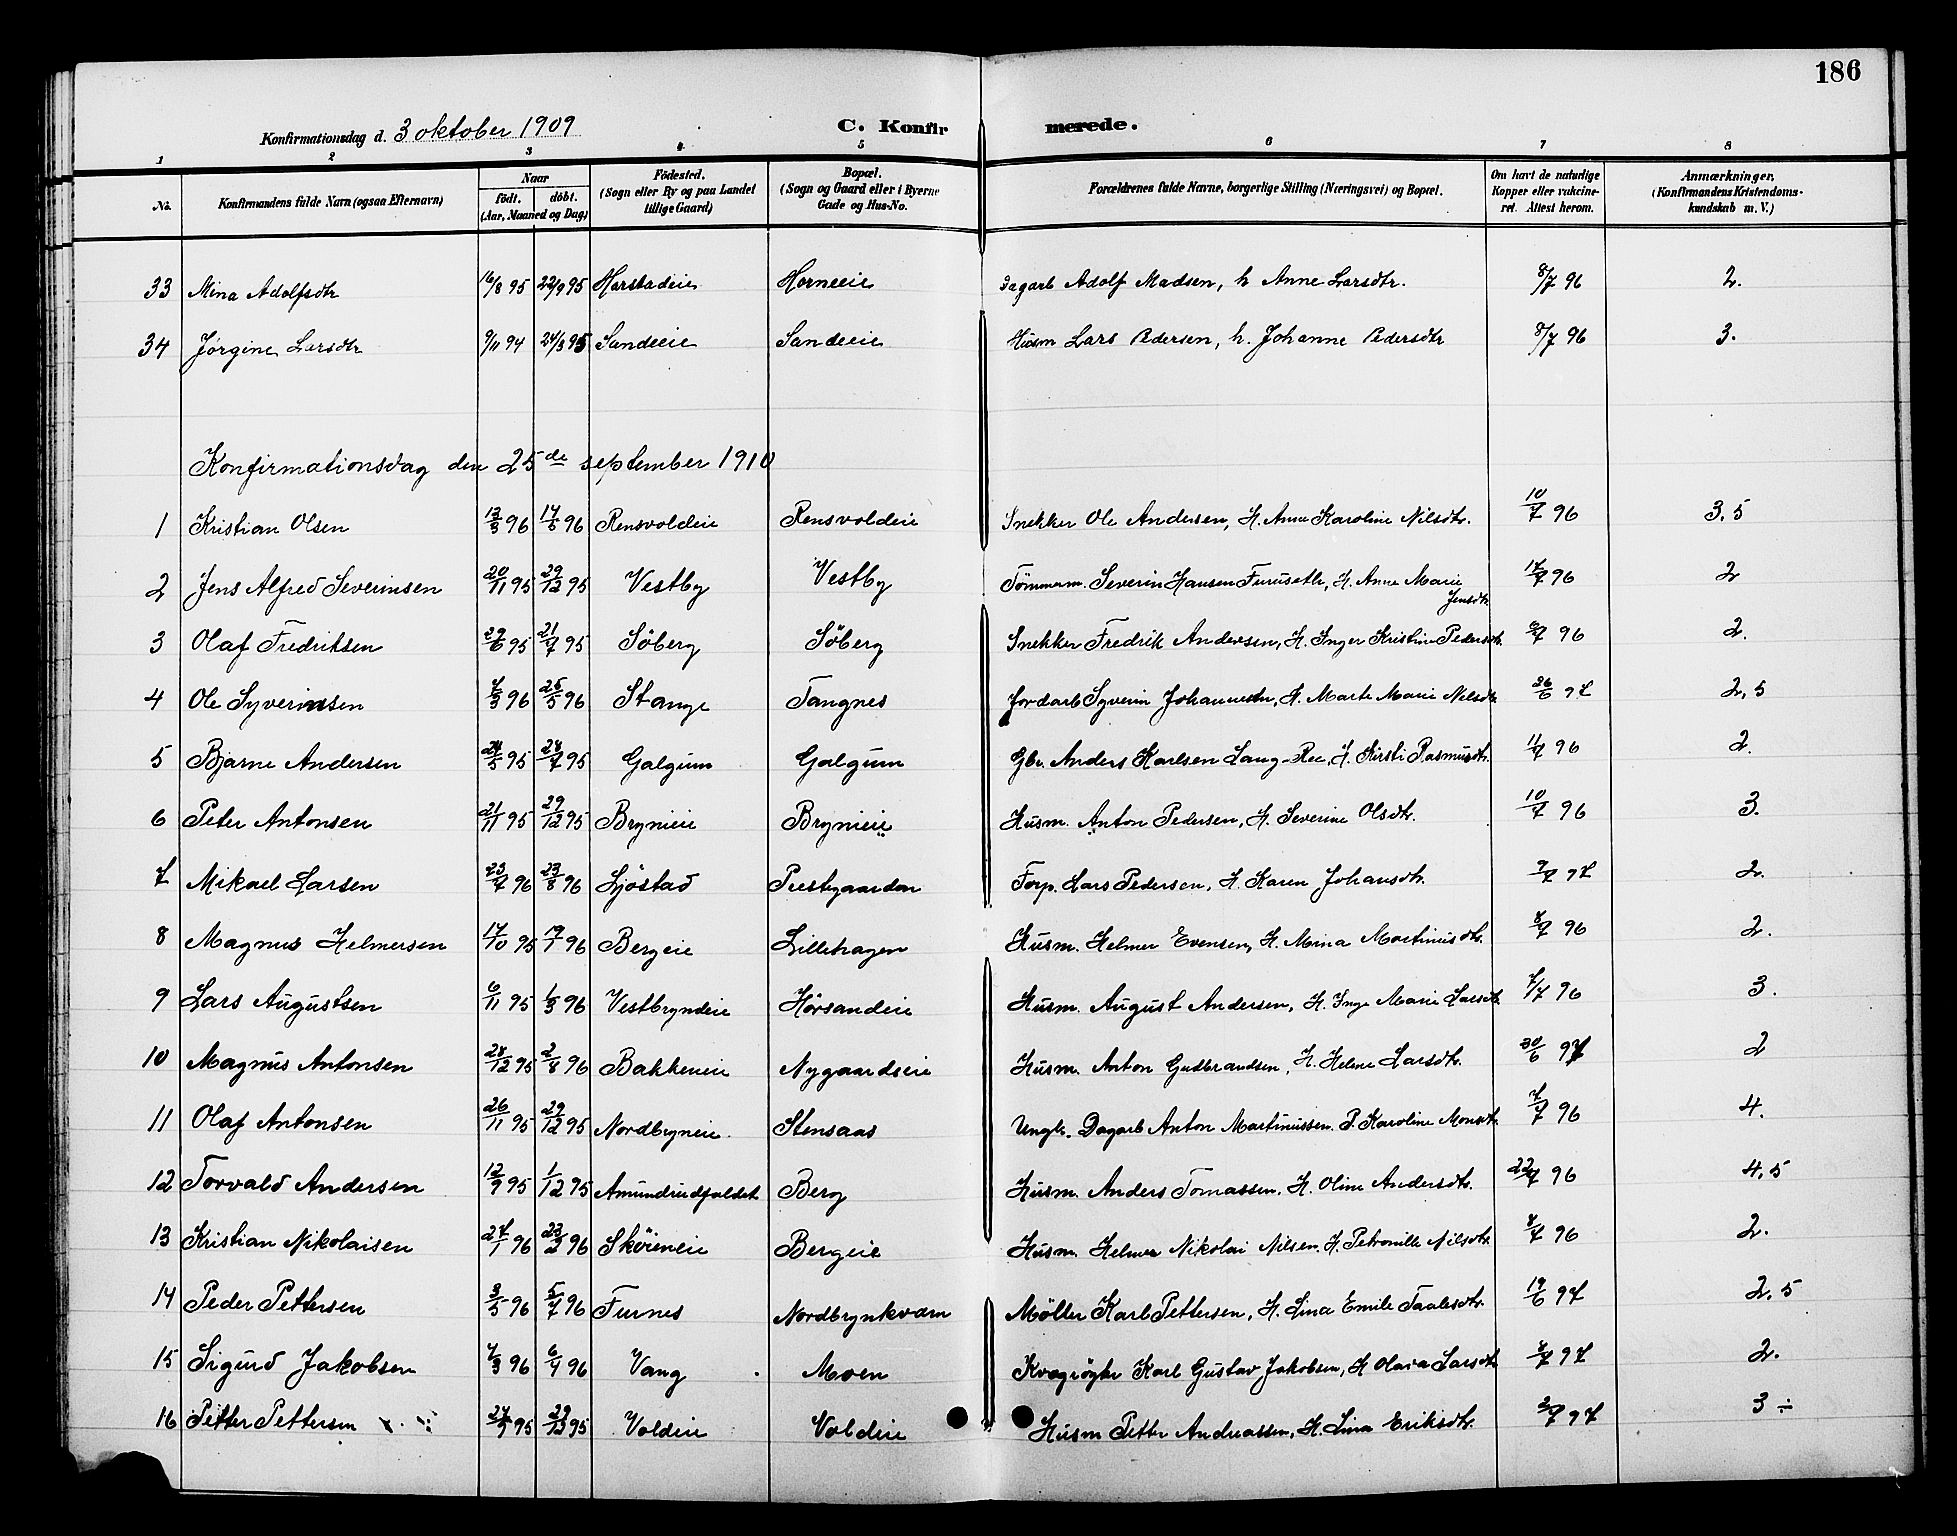 186
Konfirmationsdag d. 3 oktober 1909 C. Konfirmerede.
1 2 3 4 5 6 7 8
No. Konfirmandens fulde Navn (ogsaa Efternavn) Naar födt. döbt. (Aar, Maaned og Dag) Födested. (Sogn eller By og paa Landet tillige Gaard) Bopæl. (Sogn og Gaard eller i Byerne Gade og Hus-No. Forældrenes fulde Navne, borgerlige Stilling (Næringsvei) og Bopæl. Om havt de naturlige Kopper eller vakcineret. Attest herom. Anmærkninger. (Konfirmandens Kristendomskundskab m. V.)
33 Mina Adolfsdtr 16/8 95 22/9 95 Harstadeie Horneeie Dagarb Adolf Madsen, h Anne Larsdtr. 8/7 96 2.
34 Jørgine Larsdtr 9/11 94 24/3 95 Sandeeie Sandeeie Husm Lars Pedersen, h. Johanne Pedersdtr 8/7 96 3.
Konfirmationsdag den 25de september 1910
1 Kristian Olsen 13/3 96 17/5 96 Rensvoldeie Rensvoldeie Snekker Ole Andersen, H. Anne Karoline Nilsdtr. 10/7 96 3,5
2 Jens Alfred Severinsen 20/11 95 29/12 95 Vestby Vestby Tömmerm. Severin Hansen Furuseth, H. Anne Marie Jensdtr. 17/7 96 2
3 Olaf Fredriksen 22/6 95 21/7 95 Söberg Söberg Snekker Fredrik Andersen, H. Inger Kristine Pedersdtr. 8/7 96 2.
4 Ole Syverinsen 7/3 96 25/5 96 Stange Tangnes Jordarb Syverin Johannesen, H. Marte Marie Nilsdtr. 26/6 97 2,5
5 Bjarne Andersen 24/5 95 28/7 95 Galgum Galgum Gbr. Anders Karlsen Laug-Ree, H. Kirsti Rasmusdtr. 11/7 96 2.
6 Peter Antonsen 21/11 95 29/12 95 Brynieie Brynieie Husm. Anton Pedersen, H. Severine Olsdtr. 10/7 96 3.
7 Mikael Larsen 23/7 96 23/8 96 Ljöstad Prestgaarden Forp. Lars Pedersen, H. Karen Johansdtr. 9/7 97 2.
8 Magnus Helmersen 17/10 95 19/1 96 Bergeie Lillehagen Husm. Helmer Evensen, H. Mina Martinusdtr. 8/7 96 2.
9 Lars Augustsen 6/11 95 1/3 96 Vestbryndeie Hörsandeie Husm. August Andersen, H. Inge Marie Larsdtr. 7/7 96 3.
10 Magnus Antonsen 28/12 95 2/8 96 Bakkeneie Nygaardseie Husm. Anton Gudbrandsen, H. Helene Larsdtr. 30/6 97 2
11 Olaf Antonsen 26/11 95 29/12 95 Nordbryneie Stensaas Ungk. Dagarb Anton Martinussen. P. Karoline Monsdtr. 7/7 96 4.
12 Torvald Andersen 12/9 95 1/12 95 Amundrudfaldet Berg Husm. Anders Tomassen, H. Oline Andersdtr. 22/7 96 4,5
13 Kristian Nikolaisen 27/1 96 23/2 96 Sköieneie Bergeie Husm. Helmer Nikolai Nilsen. H. Petronille Nilsdtr. 8/7 96 2.
14 Peder Pettersen 3/5 96 5/7 96 Furnes Nordbrynkvarn Möller Karl Pettersen, H. Lina Emile Taalesdtr. 19/6 97 2,5
15 Sigurd Jakobsen 7/3 96 6/4 96 Vang Moen Kvægrögter Karl Gustav Jakobsen, H Olava Larsdtr 97 2.
16 Petter Pettersen 95 95 Voldeie Voldeie Husm Petter Andreassen, H. Lina Eriksdtr. 97 3 ÷